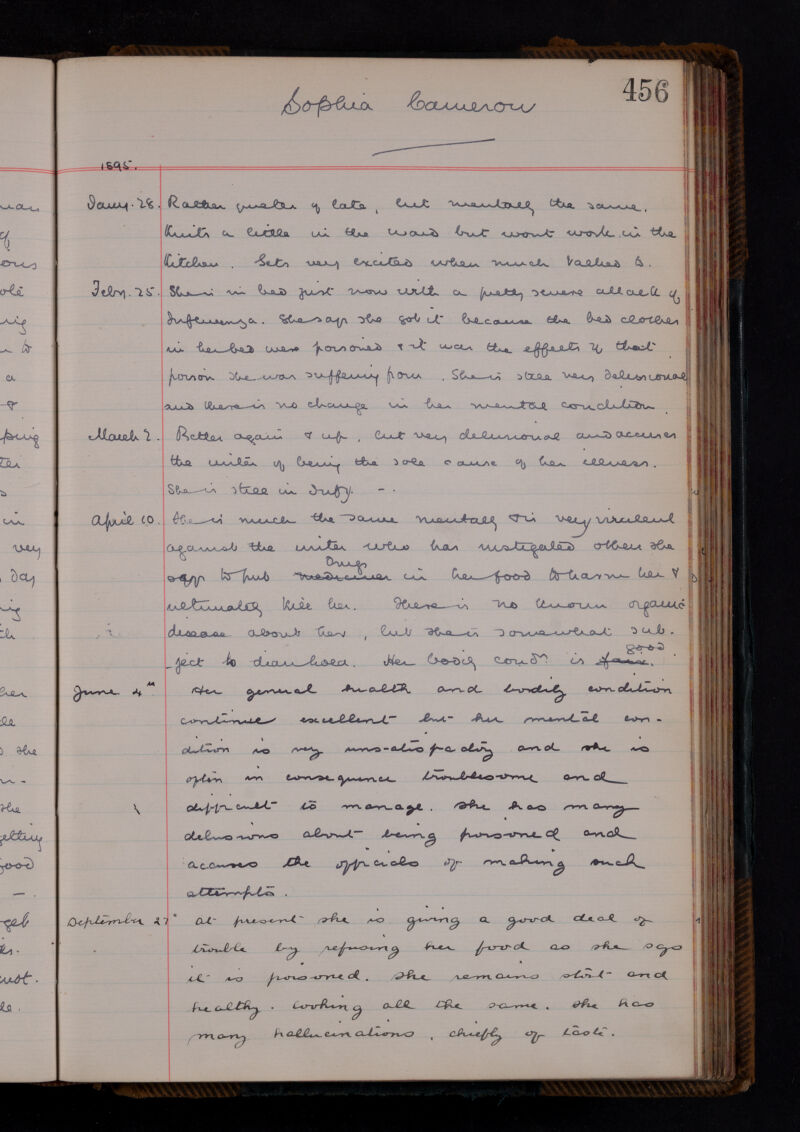 456
Sophia Cameron
1895.
Jany. 28. Rather quieter of late, but mentally the same.
Knits a little in the ward but wont work in the
Kitchen. Gets very excited when much talked to.
Feby. 25. She is in bed just now with a pretty severe attack of
Influenza. She says she got it because the bed clothes
in her bed were poisoned & it was the effects of that
poison she was suffering from. She is still very delusional
and there is no change in her mental condition.
March 2. Better again & up, but very delusional and accuses
the writer of being the sole cause of her illness.
She is still in Infy. -.
April 10. She is much the same mentally & is very virulent
against the writer who has instigated others she
Drugs
says to put medicines in her food to harm her &
ultimately kill her. There is no known organic
disease about her, but she is somewhat sub-
good
ject to diarrhoea. Her bodily condn. is fair.
June 4th Her general health and bodily condition
continue excellent but her mental con-
dition is very unsatisfactory and she is
often in consequence troublesome and
difficult to manage. She has many
delusions about being poisoned and
accuses the officials of making such
attempts.
September 27th At present she is giving a good deal of
trouble by refusing her food as she says
it is poisoned. She remains stout and
healthy looking all the same. She has
many hallucinations, chiefly of taste.